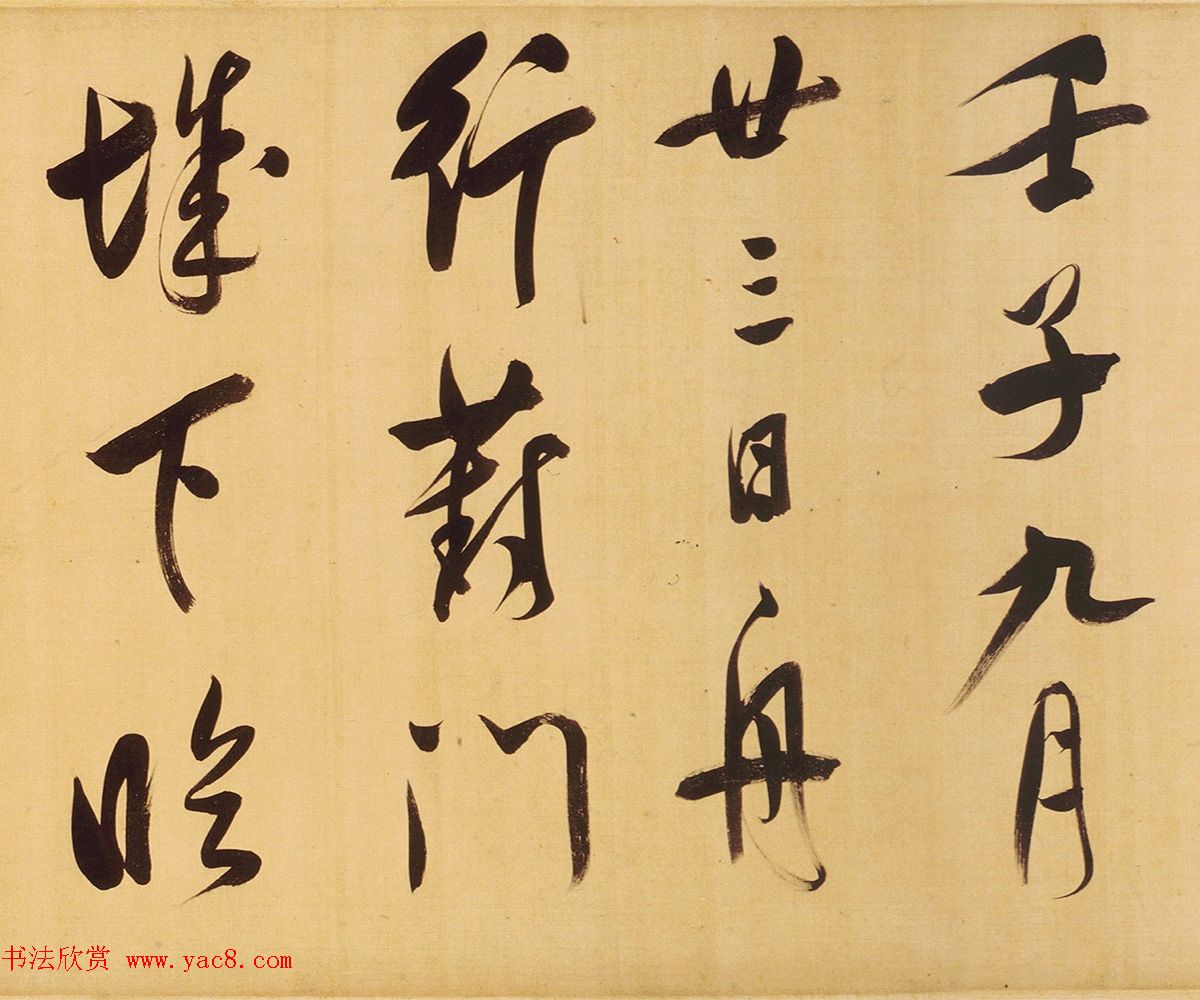 壬子九月
廿三日舟
行葑門
城下臨
书法欣赏 www.yac8.com